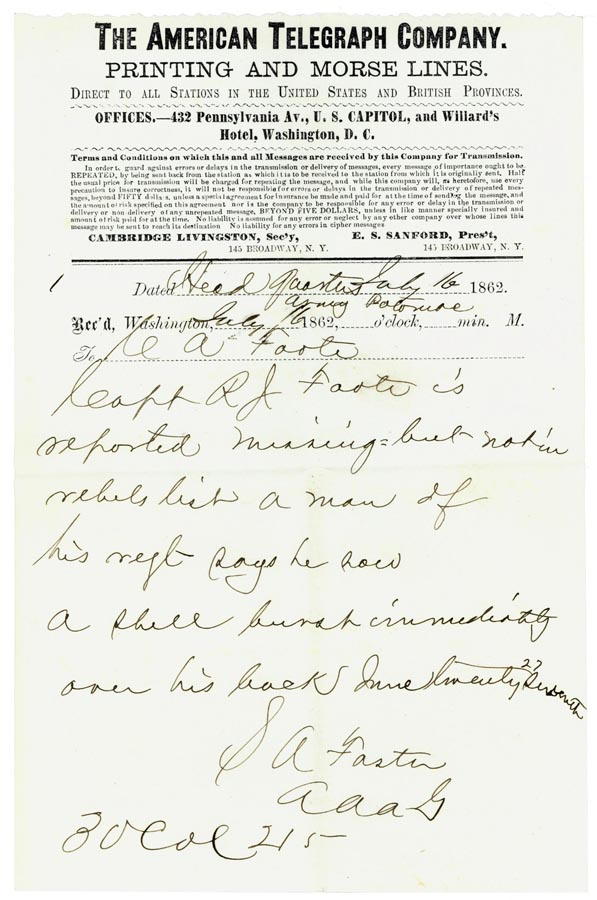 THE AMERICAN TELEGRAPH COMPANY.
PRINTING AND MORSE LINES.
DIRECT TO ALL STATIONS IN THE UNITED STATES AND BRITISH PROVINCES.
OFFICES.—432 Pennsylvania Av., U. S. CAPITOL, and Willard's
Hotel, Washington, D. C.
Terms and Conditions on which this and all Messages are received by this Company for Transmission.
In order to guard against errors or delays in the transmission or delivery of messages, every message of importance ought to be
REPEATED, by being sent back from the station at which it is to be received to the station from which it is originally sent. Half
the usual price for transmission will be charged for repeating the message, and while this company will, as heretofore, use every
precaution to insure correctness, it will not be responsible for errors or delays in the transmission or delivery of repeated mes-
sages, beyond FIFTY dollars, unless a special agreement for insurance be made and paid for at the time of sending the message, and
the amount of risk specified on this agreement nor is the company to be responsible for any error or delay in the transmission or
delivery or non delivery of any unrepeated message, BEYOND FIVE DOLLARS, unless in like manner specially insured and
amount of risk paid for at the time. No liability is assumed for any error or neglect by any other company over whose lines this
message may be sent to reach its destination No liability for any errors in cipher messages
CAMBRIDGE LIVINGSTON, Sec'y, E. S. SANFORD, Pres't,
145 BROADWAY, N. Y. 145 BROADWAY, N. Y.
Dated Head Quarters July 16 1862.
Army Potomac
Rec'd, Washington, July 16 1862, o'clock, min. M.
To C A Foote
Capt R J Foote is
reported missing = but not in
rebels list a man of
his regt says he saw
a shell burst immediately
over his back June twenty seventh
27
S A Foster
AAAG
30 Col 215